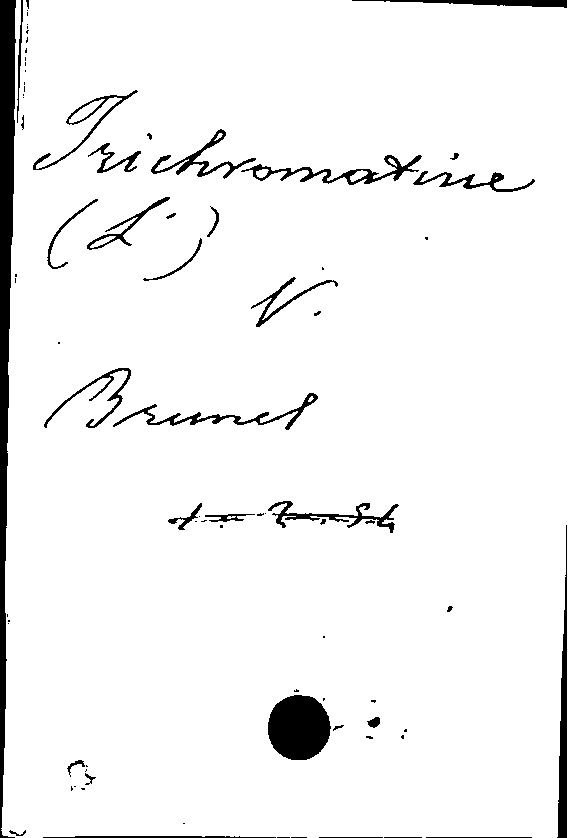 Trichromatine
(L')
V.
Brunel